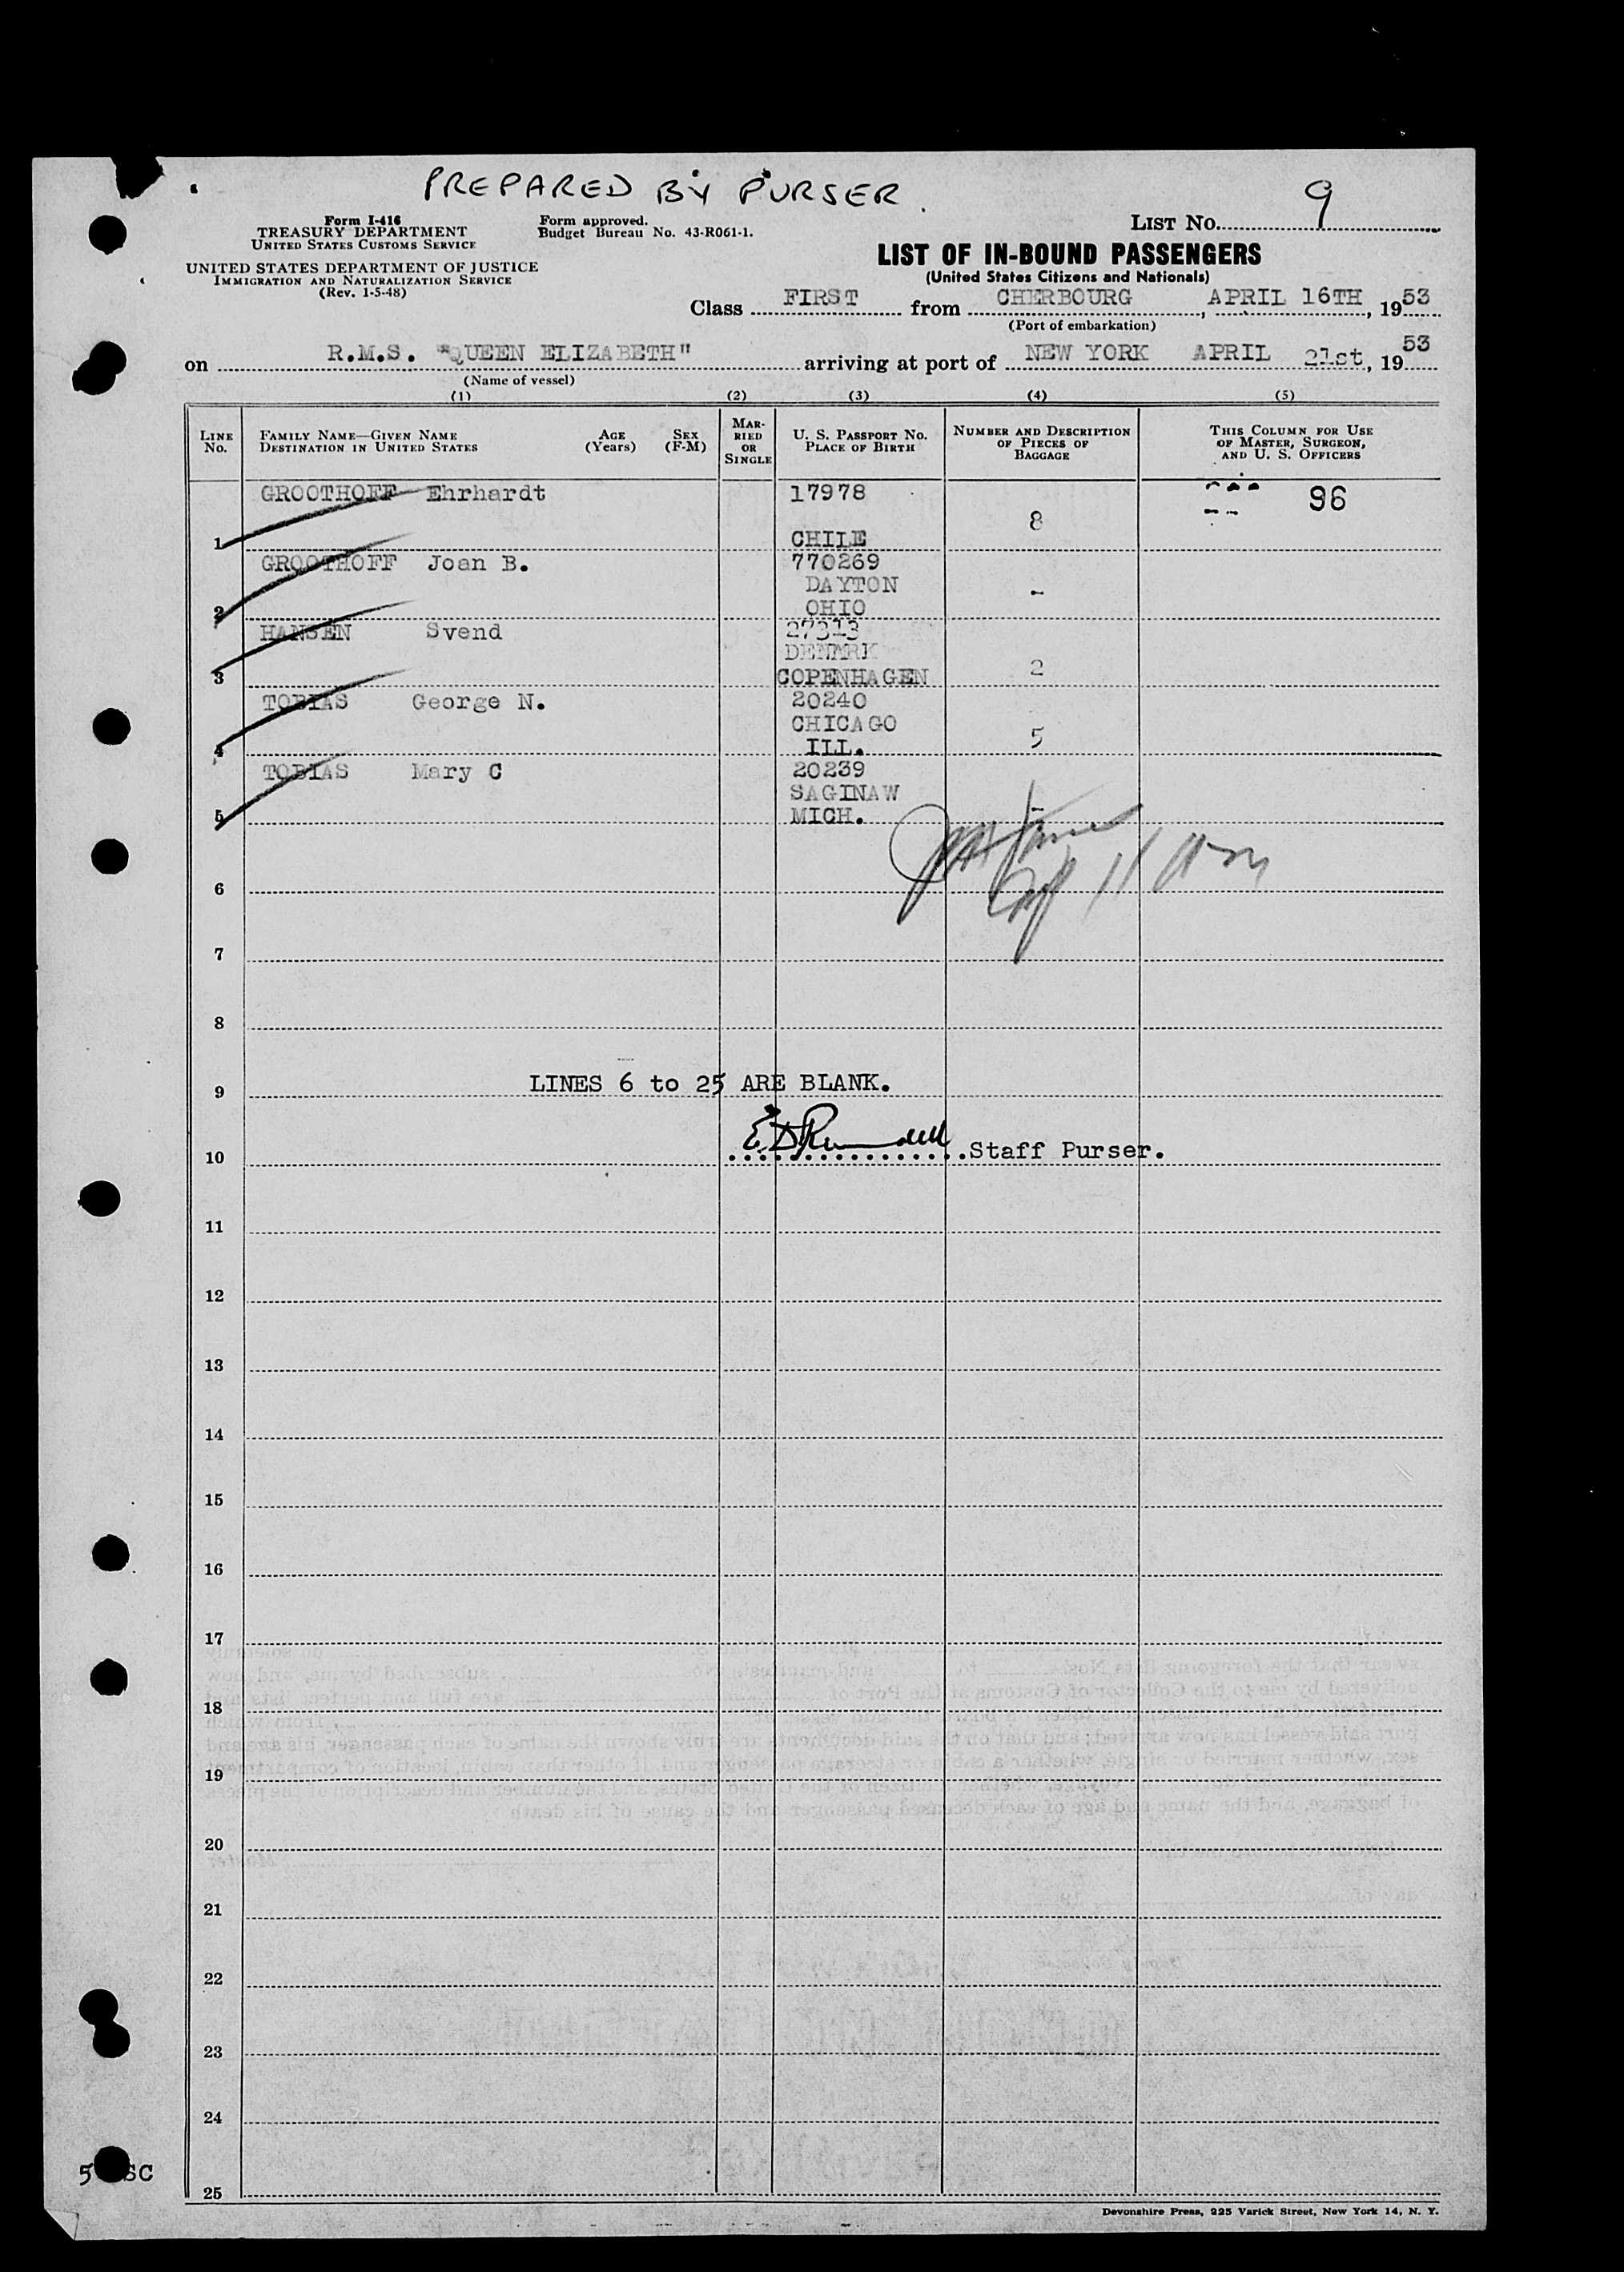 PREPARED BY PURSER.
9
Form I-416
TREASURY DEPARTMENT
UNITED STATES CUSTOMS SERVICE
UNITED STATES DEPARTMENT OF JUSTICE
IMMIGRATION AND NATURALIZATION SERVICE
(Rev. 1-5-48)
Form approved.
Budget Bureau No. 43-R061-1.
LIST NO.
LIST OF IN-BOUND PASSENGERS
(United States Citizens and Nationals)
Class FIRST from CHERBOURG, APRIL 16TH, 1953
(Port of embarkation)
on R.M.S. "QUEEN ELIZABETH" arriving at port of NEW YORK APRIL 21st, 1953
(Name of vessel)
(1) (2) (3) (4) (5)
LINE NO.
FAMILY NAME—GIVEN NAME
DESTINATION IN UNITED STATES
AGE (Years)
SEX (F-M)
MARRIED OR SINGLE
U. S. PASSPORT NO.
PLACE OF BIRTH
NUMBER AND DESCRIPTION OF PIECES OF BAGGAGE
THIS COLUMN FOR USE OF MASTER, SURGEON, AND U. S. OFFICERS
GROOTHOFF Ehrhardt 17978 96
8
1 CHILE
GROOTHOFF Joan B. 770269
DAYTON -
2 OHIO
HANSEN Svend 27313
DENMARK
3 COPENHAGEN 2
TOBIAS George N. 20240
CHICAGO
4 ILL. 5
TOBIAS Mary C 20239
SAGINAW
5 MICH. -
6
7
8
LINES 6 to 25 ARE BLANK.
9
10 Staff Purser.
11
12
13
14
15
16
17
18
19
20
21
22
23
24
5 SC
25
Devonshire Press, 225 Varick Street, New York 14, N. Y.